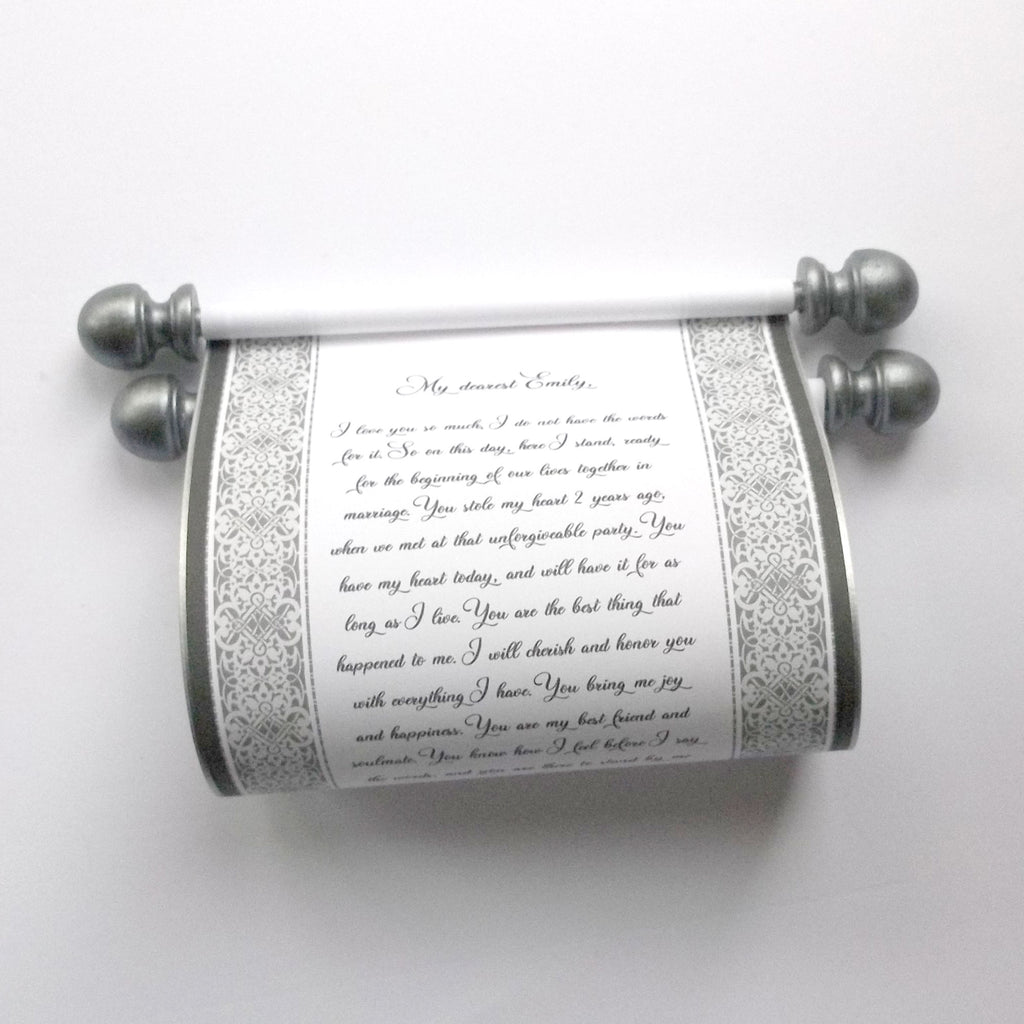 My dearest Emily,
I love you so much, I do not have the words
for it. So on this day, here I stand, ready
for the beginning of our lives together in
marriage. You stole my heart 2 years ago,
when we met at that unforgiveable party. You
have my heart today, and will have it for as
long as I live. You are the best thing that
happened to me. I will cherish and honor you
with everything I have. You bring me joy
and happiness. You are my best friend and
soulmate. You know how I feel before I say
the words, and you are there to stand by me